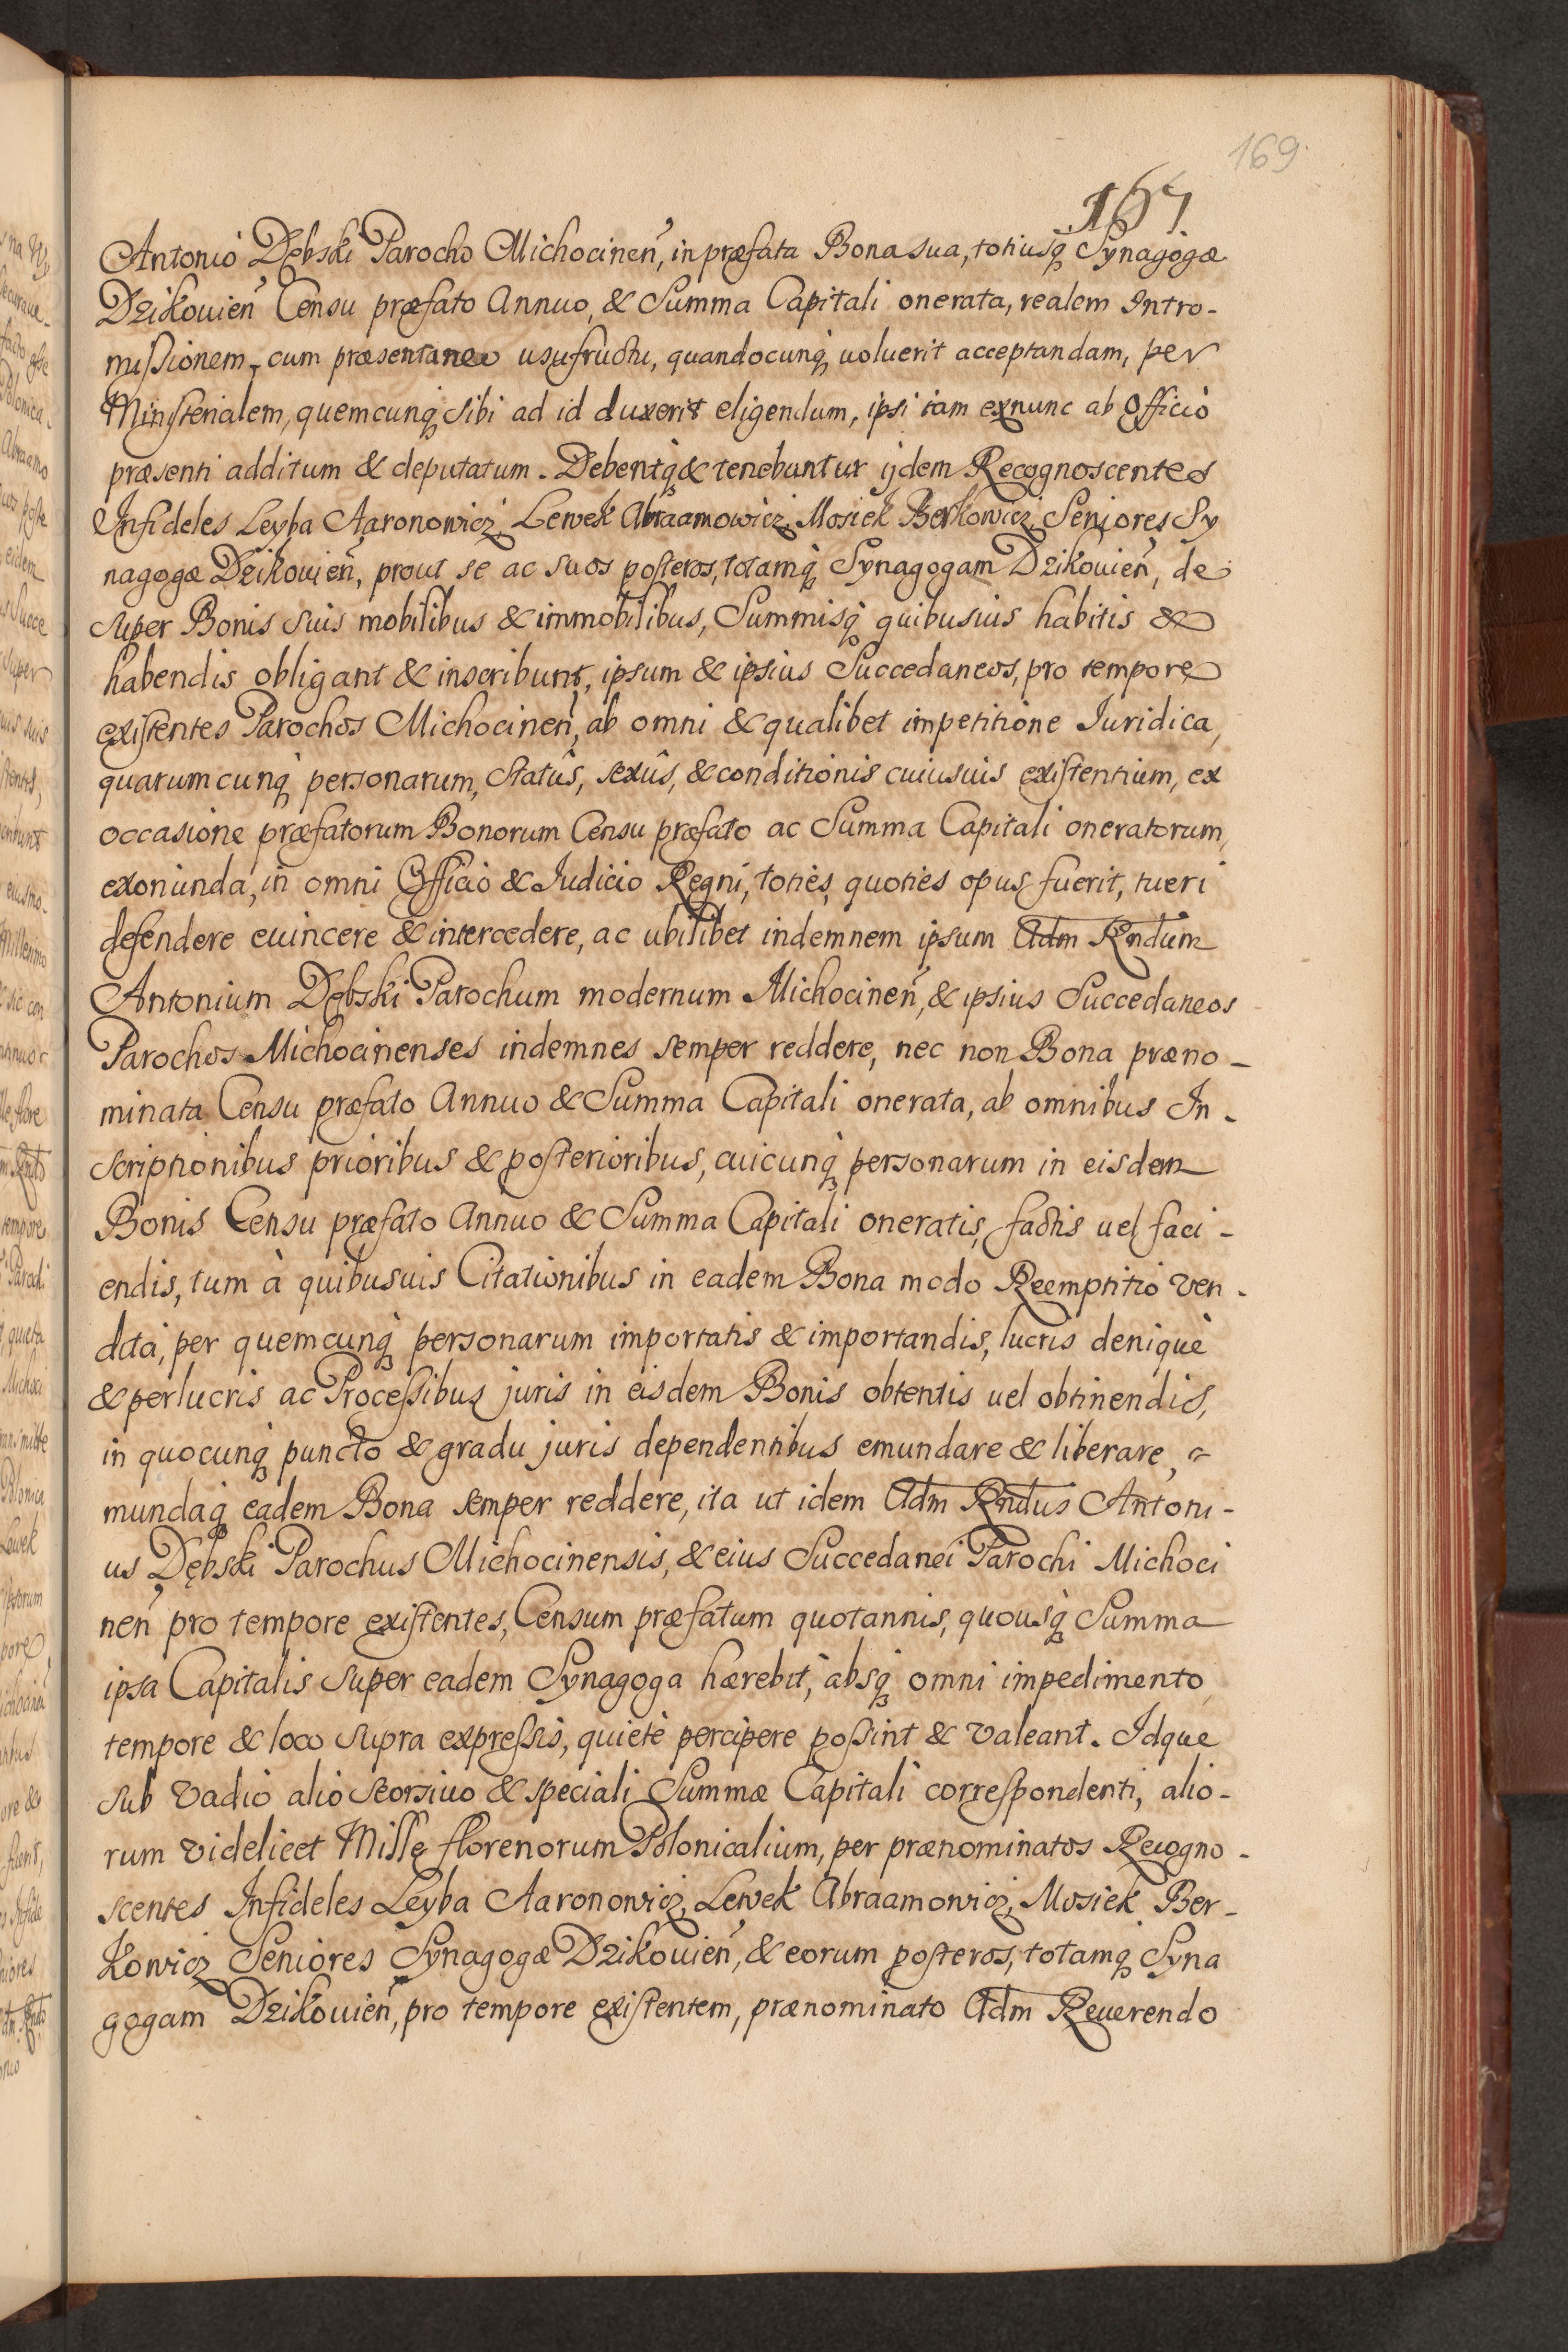 169
167
Antonio Dębski Parocho Michocinen̄, in præfata Bona sua, totiusq̷ Synagogæ
Dzikouien̄ Censu præfato Annuo, & Summa Capitali onerata, realem Intro-
missionem, cum præsentaneo usufructu, quandocunq̷ uoluerit acceptandam, per
Ministerialem, quemcunq̷ sibi ad id duxerit eligendum, ipsi iam exnunc ab Officiò
præsenti additum & deputatum. Debentq̷ & tenebuntur ijdem Recognoscentes
Infideles Leyba Aaronowicz, Lewek Abraamowicz, Mosiek Berkowicz, Seniores Sy
nagogæ Dzikouien̄, prout se ac suos posteros, totamq̷ Synagogam Dzikouien̄, de
super Bonis suis mobilibus & immobilibus, Summisq̷ quibusuis habitis &
habendis obligant & inscribunt, ipsum & ipsius Succedaneos, pro tempore
existentes Parochos Michocinen̄, ab omni & qualibet impetitione Iuridica,
quarumcunq̷ personarum, Statûs, sexûs, & conditionis cuiusuis existentium, ex
occasione præfatorum Bonorum Censu præfato ac Summa Capitali oneratorum,
exoriunda, in omni Officio & Iudicio Regni, toties, quoties opus fuerit, tueri
defendere euincere & intercedere, ac ubilibet indemnem ipsum Adm Rndum
Antonium Dębski Parochum modernum Michocinen̄, & ipsius Succedaneos
Parochos Michocinenses indemnes semper reddere, nec non Bona præno-
minata Censu præfato Annuo & Summa Capitali onerata, ab omnibus In-
scriptionibus prioribus & posterioribus, cuicunq̷ personarum in eisdem
Bonis Censu præfato Annuo & Summa Capitali oneratis, factis uel faci-
endis, tum à quibusuis Citationibus in eadem Bona modo Reemptitio ven-
dita, per quemcunq̷ personarum importatis & importandis, lucris denique
& perlucris ac Processibus juris in eisdem Bonis obtentis uel obtinendis,
in quocunq̷ puncto & gradu juris dependentibus emundare & liberare,
mundaq̷ eadem Bona semper reddere, ita ut idem Adm Rndus Antoni-
us Dębski Parochus Michocinensis, & eius Succedanei Parochi Michoci
nen̄ pro tempore existentes, Censum præfatum quotannis, quousq̷ Summa
ipsa Capitalis super eadem Synagoga hærebit, absq̷ omni impedimento
tempore & loco supra expressis, quietè percipere possint & valeant. Idque
sub vadio alio seorsiuo & speciali Summæ Capitali correspondenti, alio-
rum videlicet Mille florenorum Polonicalium, per prænominatos Recogno-
scentes Infideles Leyba Aaronowicz, Lewek Abraamowicz, Mosiek Ber-
kowicz Seniores Synagogæ Dzikouien̄, & eorum posteros, totamq̷ Syna
gogam Dzikouien̄, pro tempore existentem, prænominato Adm Reuerendo